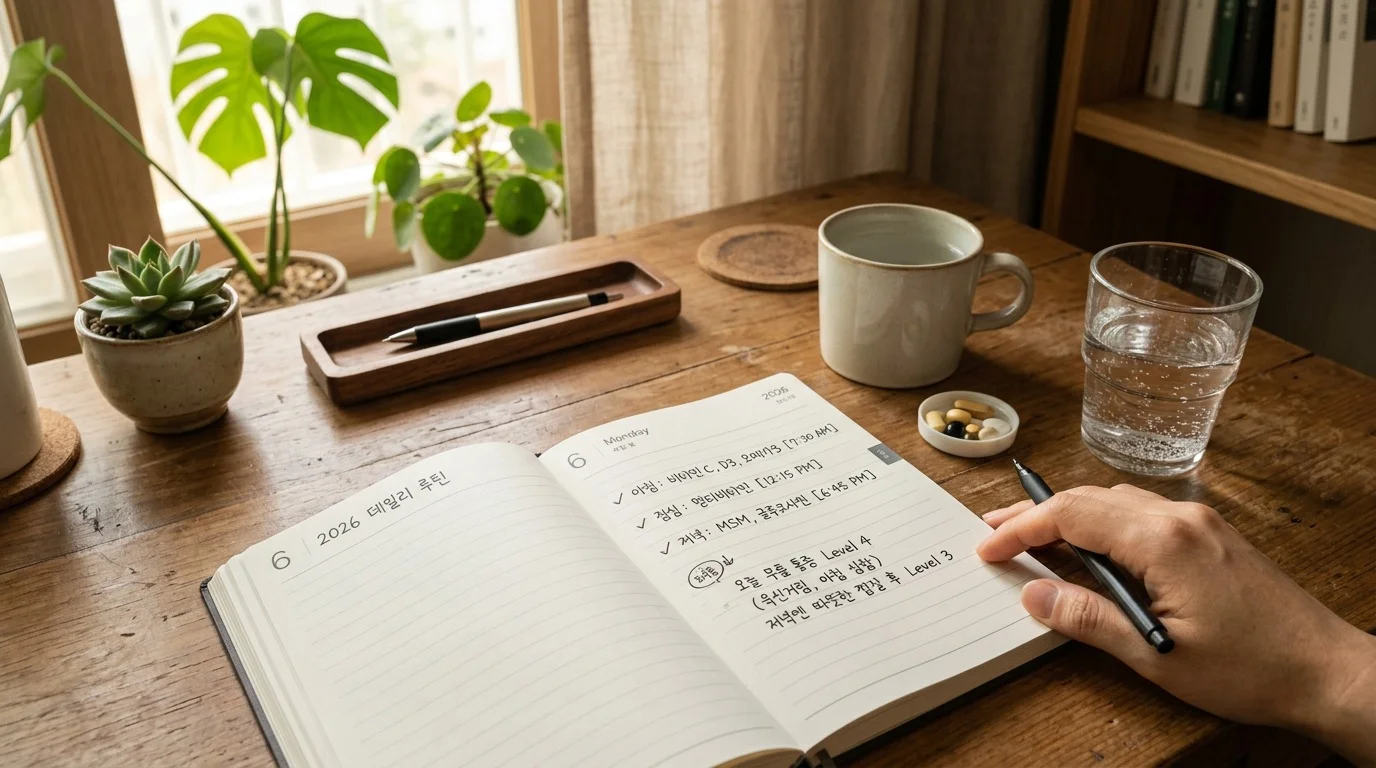 6
2026 데일리 루틴
2026
6
Monday
✓ 아침 : 비타민 C, D3, 오메가3 [7:30 AM]
✓ 점심 : 멀티비타민 [12:15 PM]
✓ 저녁 : MSM, 글루코사민 [6:45 PM]
오늘 무릎 통증 Level 4
(욱신거림, 아침 심함)
저녁엔 따뜻한 찜질 후 Level 3